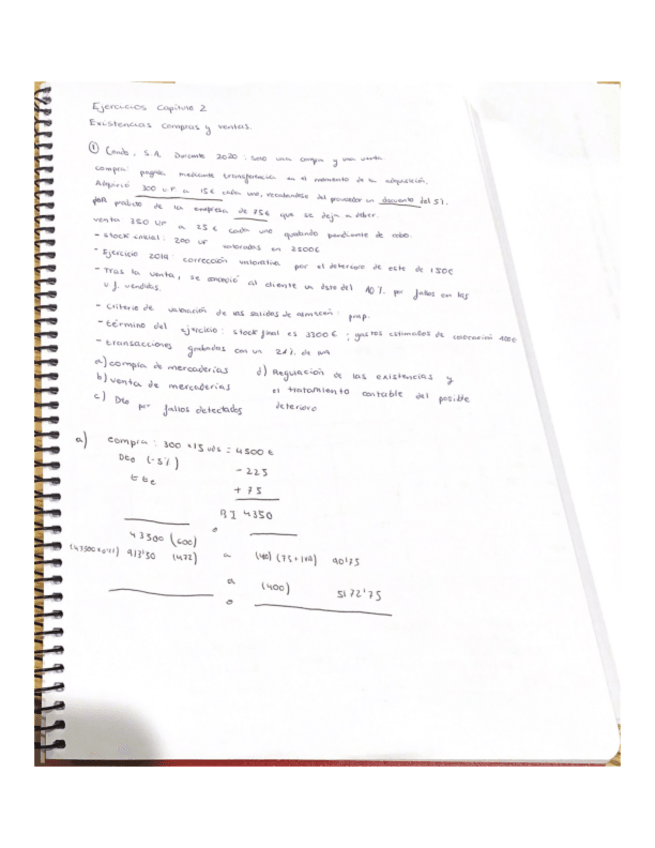 Ejercicios Capitulo 2
Existencias compras y ventas.
① Condo, S.A. Durante 2020: solo una compra y una venta.
compra: pagada mediante transferencia en el momento de la adquisición.
Adquirió 300 u.f. a 15€ cada una, recibiendose del proveedor un descuento del 5%.
de la empresa de 75€ que se deja a deber.
venta 350 uf a 25€ cada una quedando pendiente de cobro.
- Stock inicial: 200 uf valoradas en 2500€
- Ejercicio 2019: corrección valorativa por el deterioro de este de 150€
- Tras la venta, se concedió al cliente un dsto del 10% por fallos en las
u.f. vendidas.
- Criterio de valoración de las salidas de almacén: pmp.
- término del ejercicio: stock final es 3300€; gastos estimados de
- transacciones grabadas con un 21% de iva
a) compra de mercaderías d) Regulación de las existencias y
b) venta de mercaderías el tratamiento contable del posible
c) Dto por fallos detectados deterioro
a) compra: 300 × 15 = 4500 €
Dto (-5%) - 225
+ 75
BI 4350
43500 (600) a
913'50 (472) a (75+ 90'75
a (400) 5172'75
a